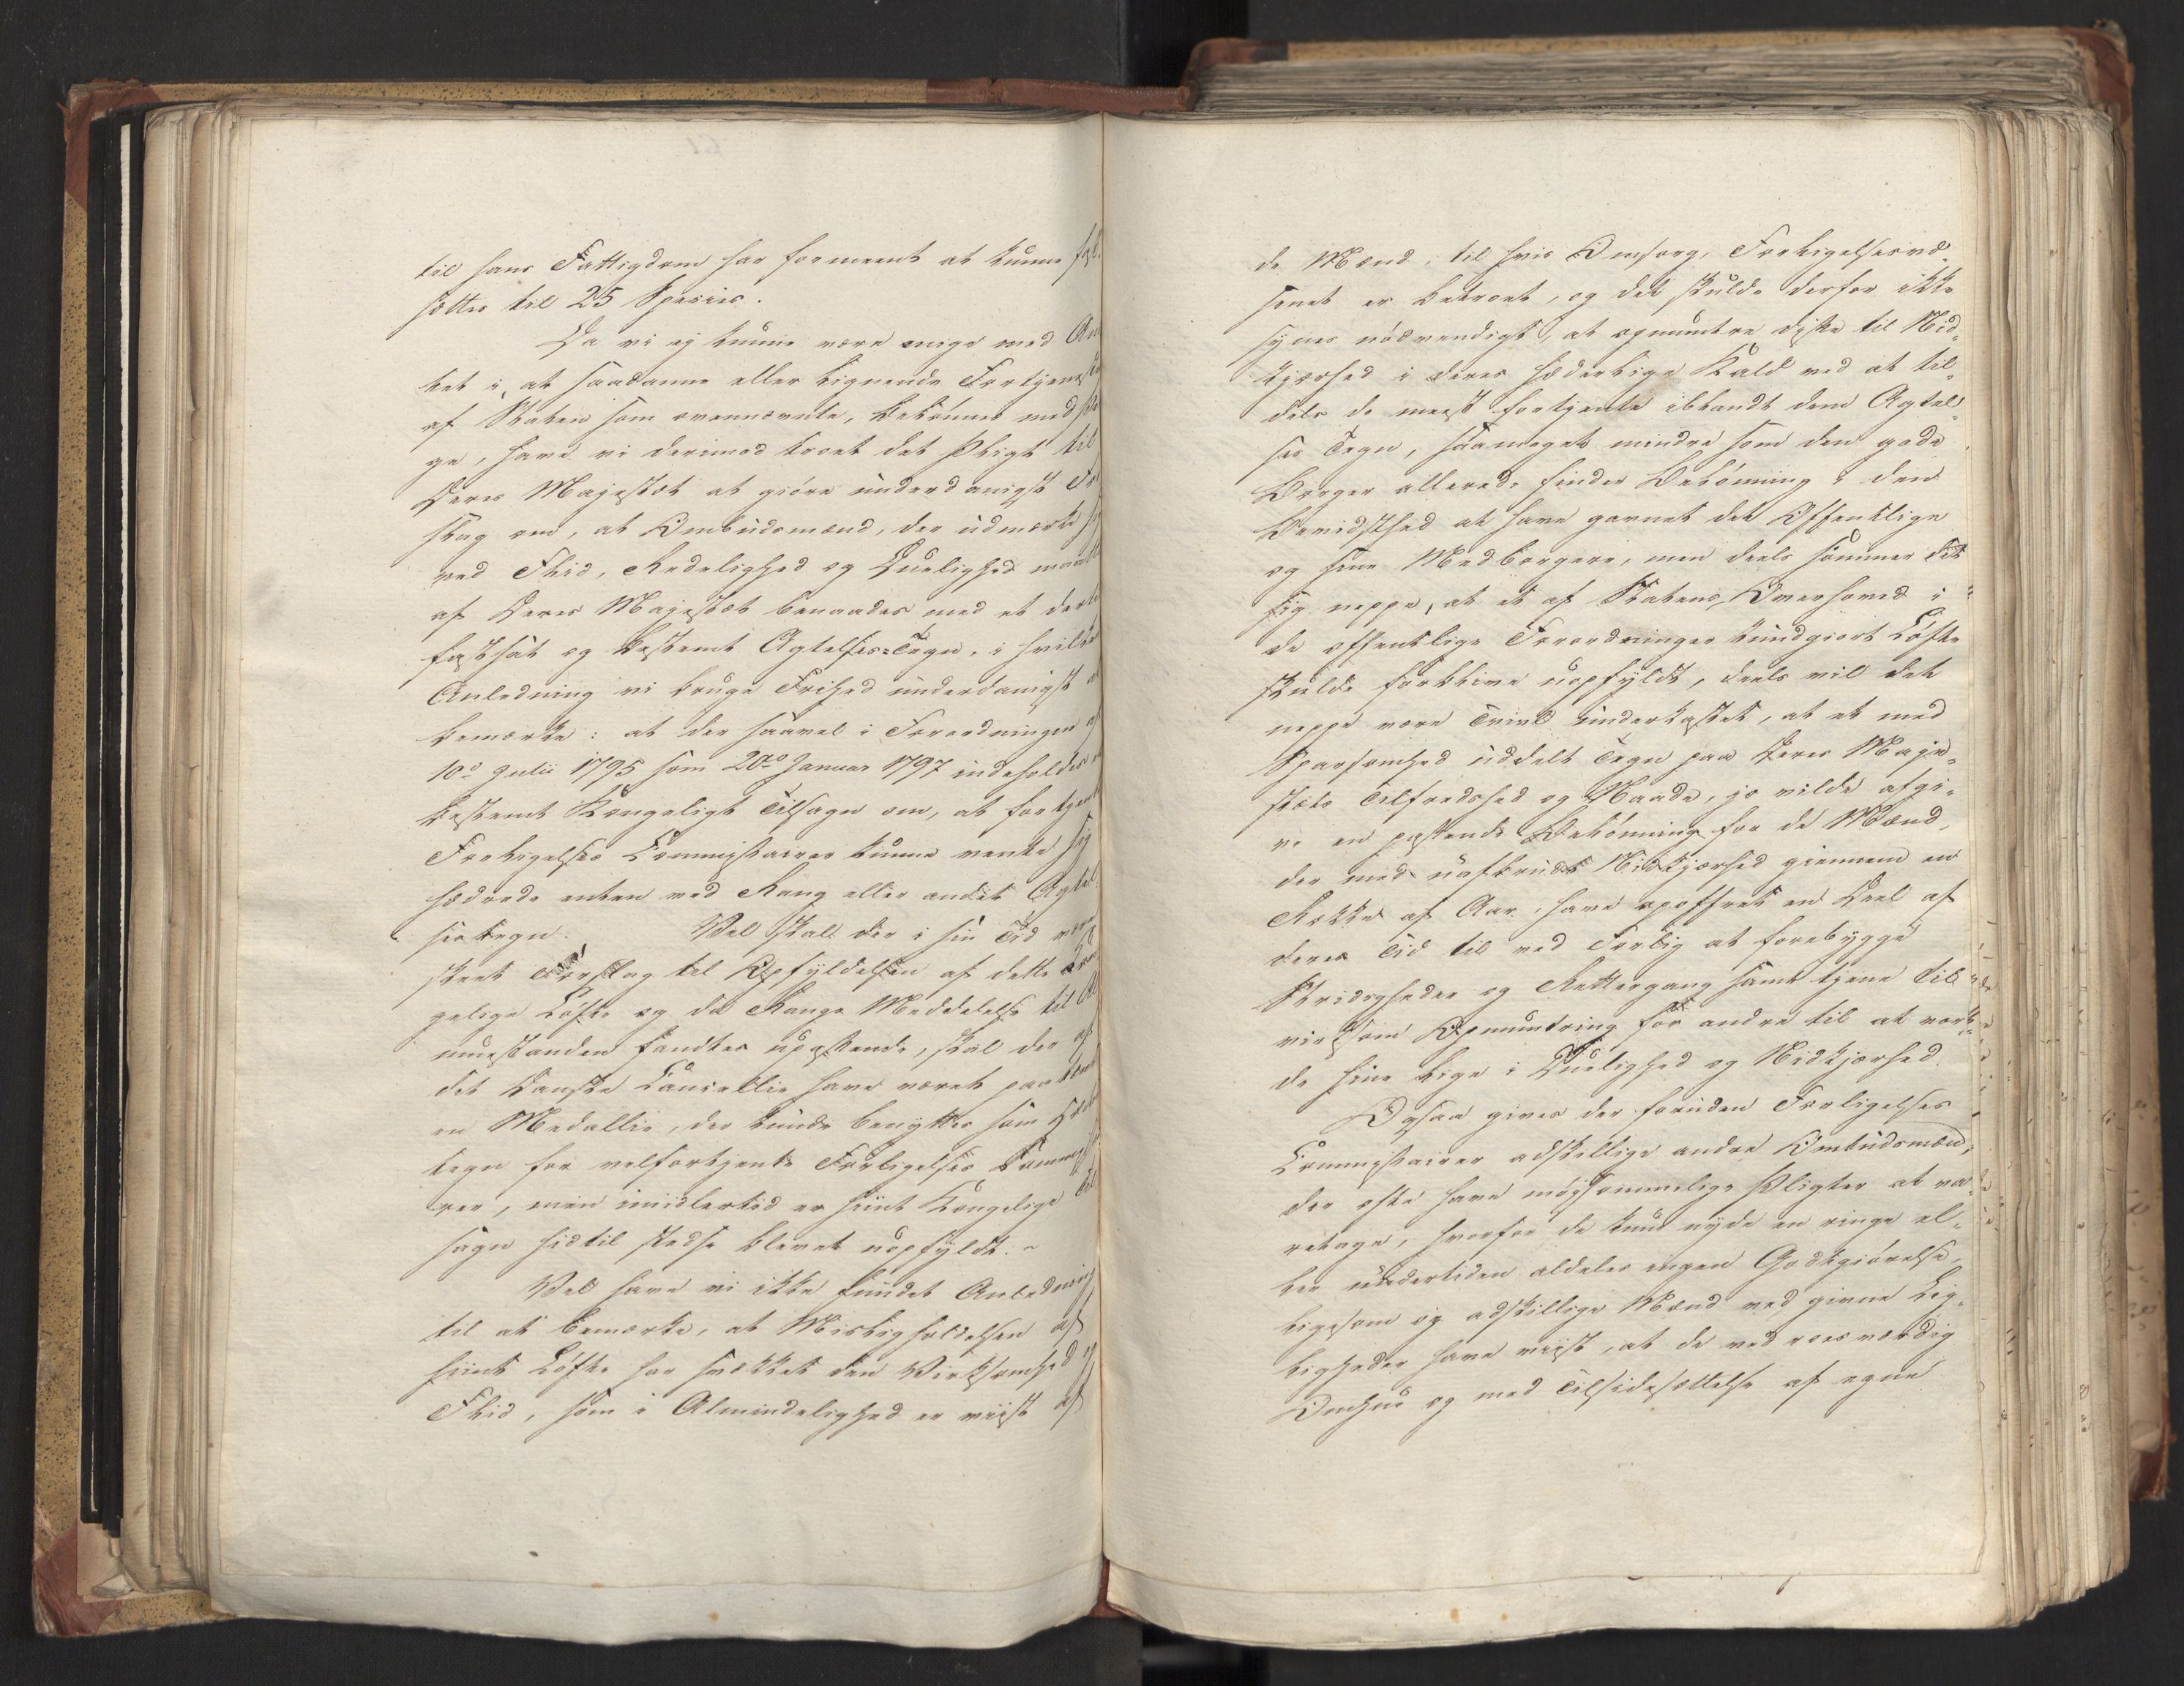 til hans Fattigdom har formeent at kunne fast
sættes til 25 Species.
Da vi ej kunne være enige med Am
tet i, at saadanne eller lignende Fortjenest
af Staten som ovennævnte, belønnes med Pen
ge, have vi derimod troet det Pligt til
Deres Majestæt at giøre underdanigst For
slag om, at Ombudsmænd, der udmærke sig
ved Fliid, Redelighed og Duelighed maatte
af Deres Majestæt benaades med et dertil
fastsat og bestemt Agtelses-Tegn, i hvilken
Anledning vi bruge Frihed underdanigst at
bemærke: at der saavel i Forordningen af
10de Julii 1795 som 20de Januar 1797 indeholdes et
bestemt Kongeligt Tilsagn om, at fortjente
Forligelses Commissairer kunne vente sig
hædrede enten med Rang eller andet Agtel
sestegn. Vel skal der i sin Tid være
skeet Forslag til Opfyldelsen af dette Kon
gelige Løfte og da Rangs Meddelelse til Al
muestanden fandtes upassende, skal der af
det Danske Cancellie have været paatænkt
en Medallie, der kunde benyttes som Hæders
tegn for velfortjente Forligelses Commissai
rer, men imidlertid er hiint Kongelige Til
sagn hidtil stedse blevet uopfyldt.-
Vel have vi ikke fundet Anledning
til at bemærke, at Misligholdelsen af
hiint Løfte har svækket den Virksomhed og
Fliid, som i Almindelighed er viist af
de Mænd, til hvis Omsorg, Forligelsesvæ-
senet er betroet, og det skulde derfor ikke
synes nødvendigt, at opmuntre disse til Nid-
kjærhed i deres hæderlige Kald ved at til-
dele de meest fortjente iblandt dem Agtel-
ses Tegn, saameget mindre som den gode
Borger allerede finder Belønning i den
Bevidsthed at have gavnet det Offentlige
og sine Medborgere, men deels sømmer det
sig neppe, at et af Statens Overhoved i
de offentlige Forordninger kundgiort Løfte
skulde forblive uopfyldt, deels vil det
neppe være Tvivl underkastet, at et med
Sparsomhed uddelt Tegn paa Deres Maje-
stæts Tilfredshed og Naade, jo vilde afgi-
ve en passende Belønning for de Mænd,
der med uafbrudt Nidkjærhed giennem en
Række af Aar, have opoffret en Deel af
deres Tid til ved Forlig at forebygge
Stridigheder og Rettergang samt tjene til
virksom Opmuntring for andre til at vor-
de hine lige i Duelighed og Nidkjærhed.
Ogsaa gives der foruden Forligelses
Commissairer adskillige andre Ombudsmænd,
der ofte have møysommelige Pligter at va-
retage, hvorfor de kun nyde en ringe el-
ler undertiden aldeles ingen Godtgiørelse,
ligesom og adskillige Mænd ved givne Lej-
ligheder have viist, at de ved roesværdig
Omhue og med Tilsidesættelse af egne